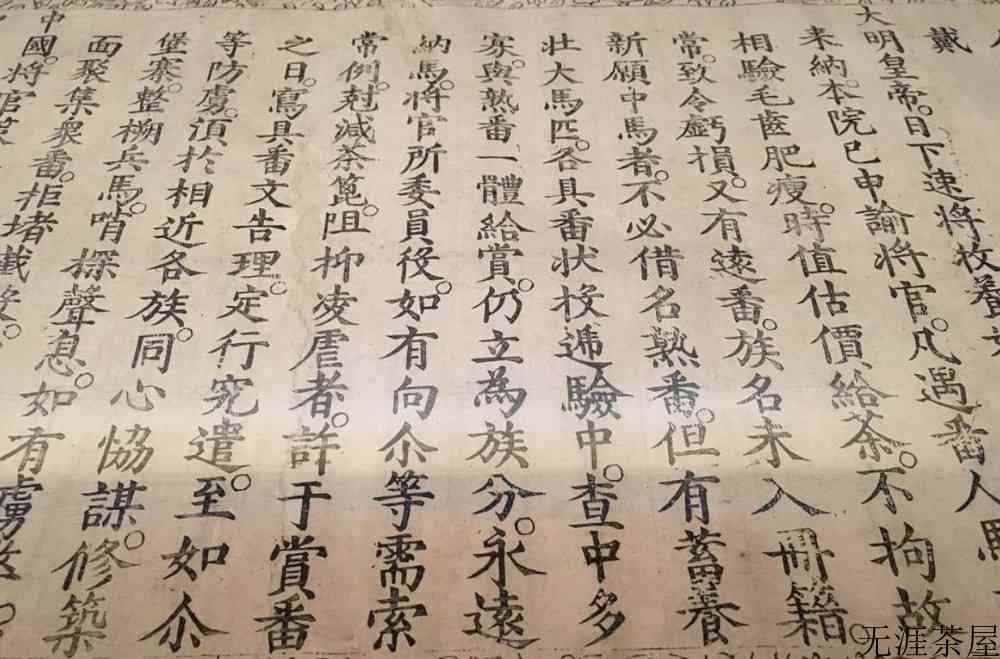 戴
大明皇帝日下速將牧養
來納本院已申諭將官凡遇番人
相驗毛齒肥瘦時值估價給茶不拘故
常致令虧損又有遠番族名未入冊籍
新願中馬者不必借名熟番但有蓄養
壯大馬匹各具番狀投遞驗中查中多
寡與熟番一體給賞仍立為族分永遠
納馬將官所委員役如有向尒等需索
常例尅減茶篦阻抑凌虐者許于賞番
之日寫具番文告理定行究遣至如尒
等防虜湏於相近各族同心恊謀修築
堡寨整搠兵馬哨探聲息如有虜
面聚集衆番拒堵截
中國將官
无涯茶屋